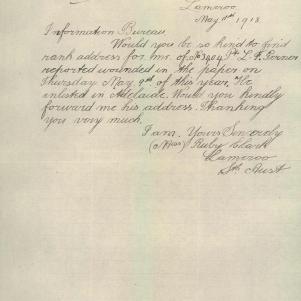 Lameroo
May 11th 1918
Information Bureau
Would you be so kind to find
rank address for me of No 3904 Pte L. F.
reported wounded in the paper on
Thursday May 9th of this year, He
enlisted in Adelaide. Would you kindly
forward me his address. Thanking
you very much.
I am. Yours Sincerely
(Miss) Ruby Clark
Lameroo
Sth Aust